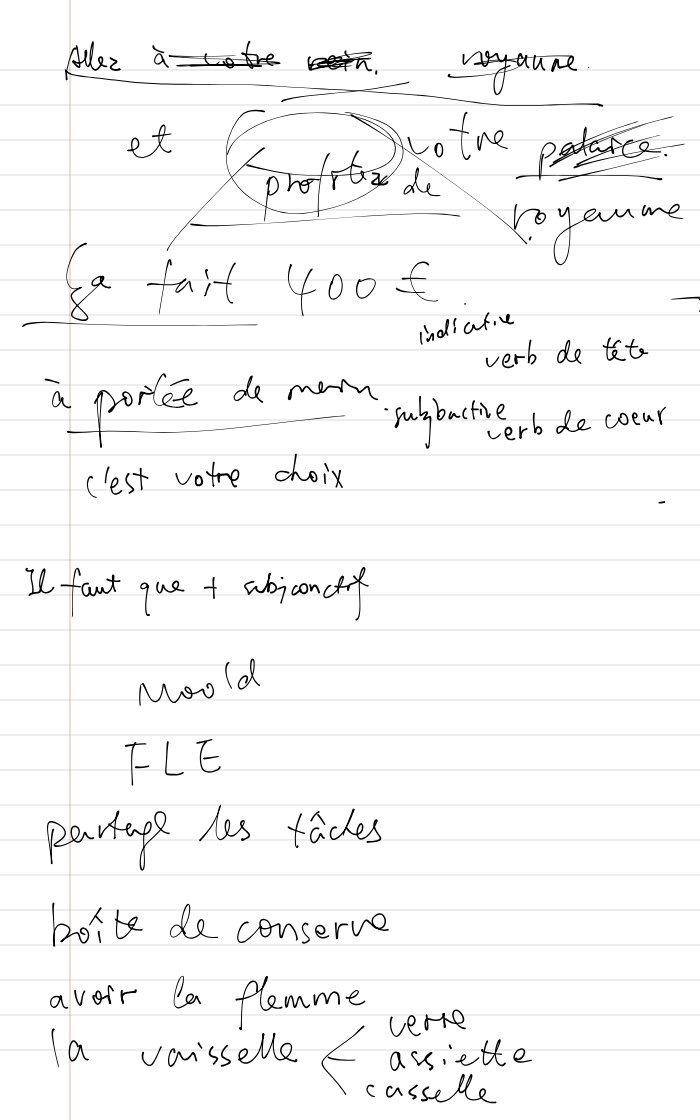 Allez à votre royaume.
et profitez de votre palaice.
royaume
ça fait 400 €
indicative
verb de tête
à portée de main
subjbactive
verb de coeur
c'est votre choix
Il faut que + subjonctif
Moold
FLE
partage les tâches
boîte de conserve
avoir la flemme
verre
la vaisselle < assiette
casselle